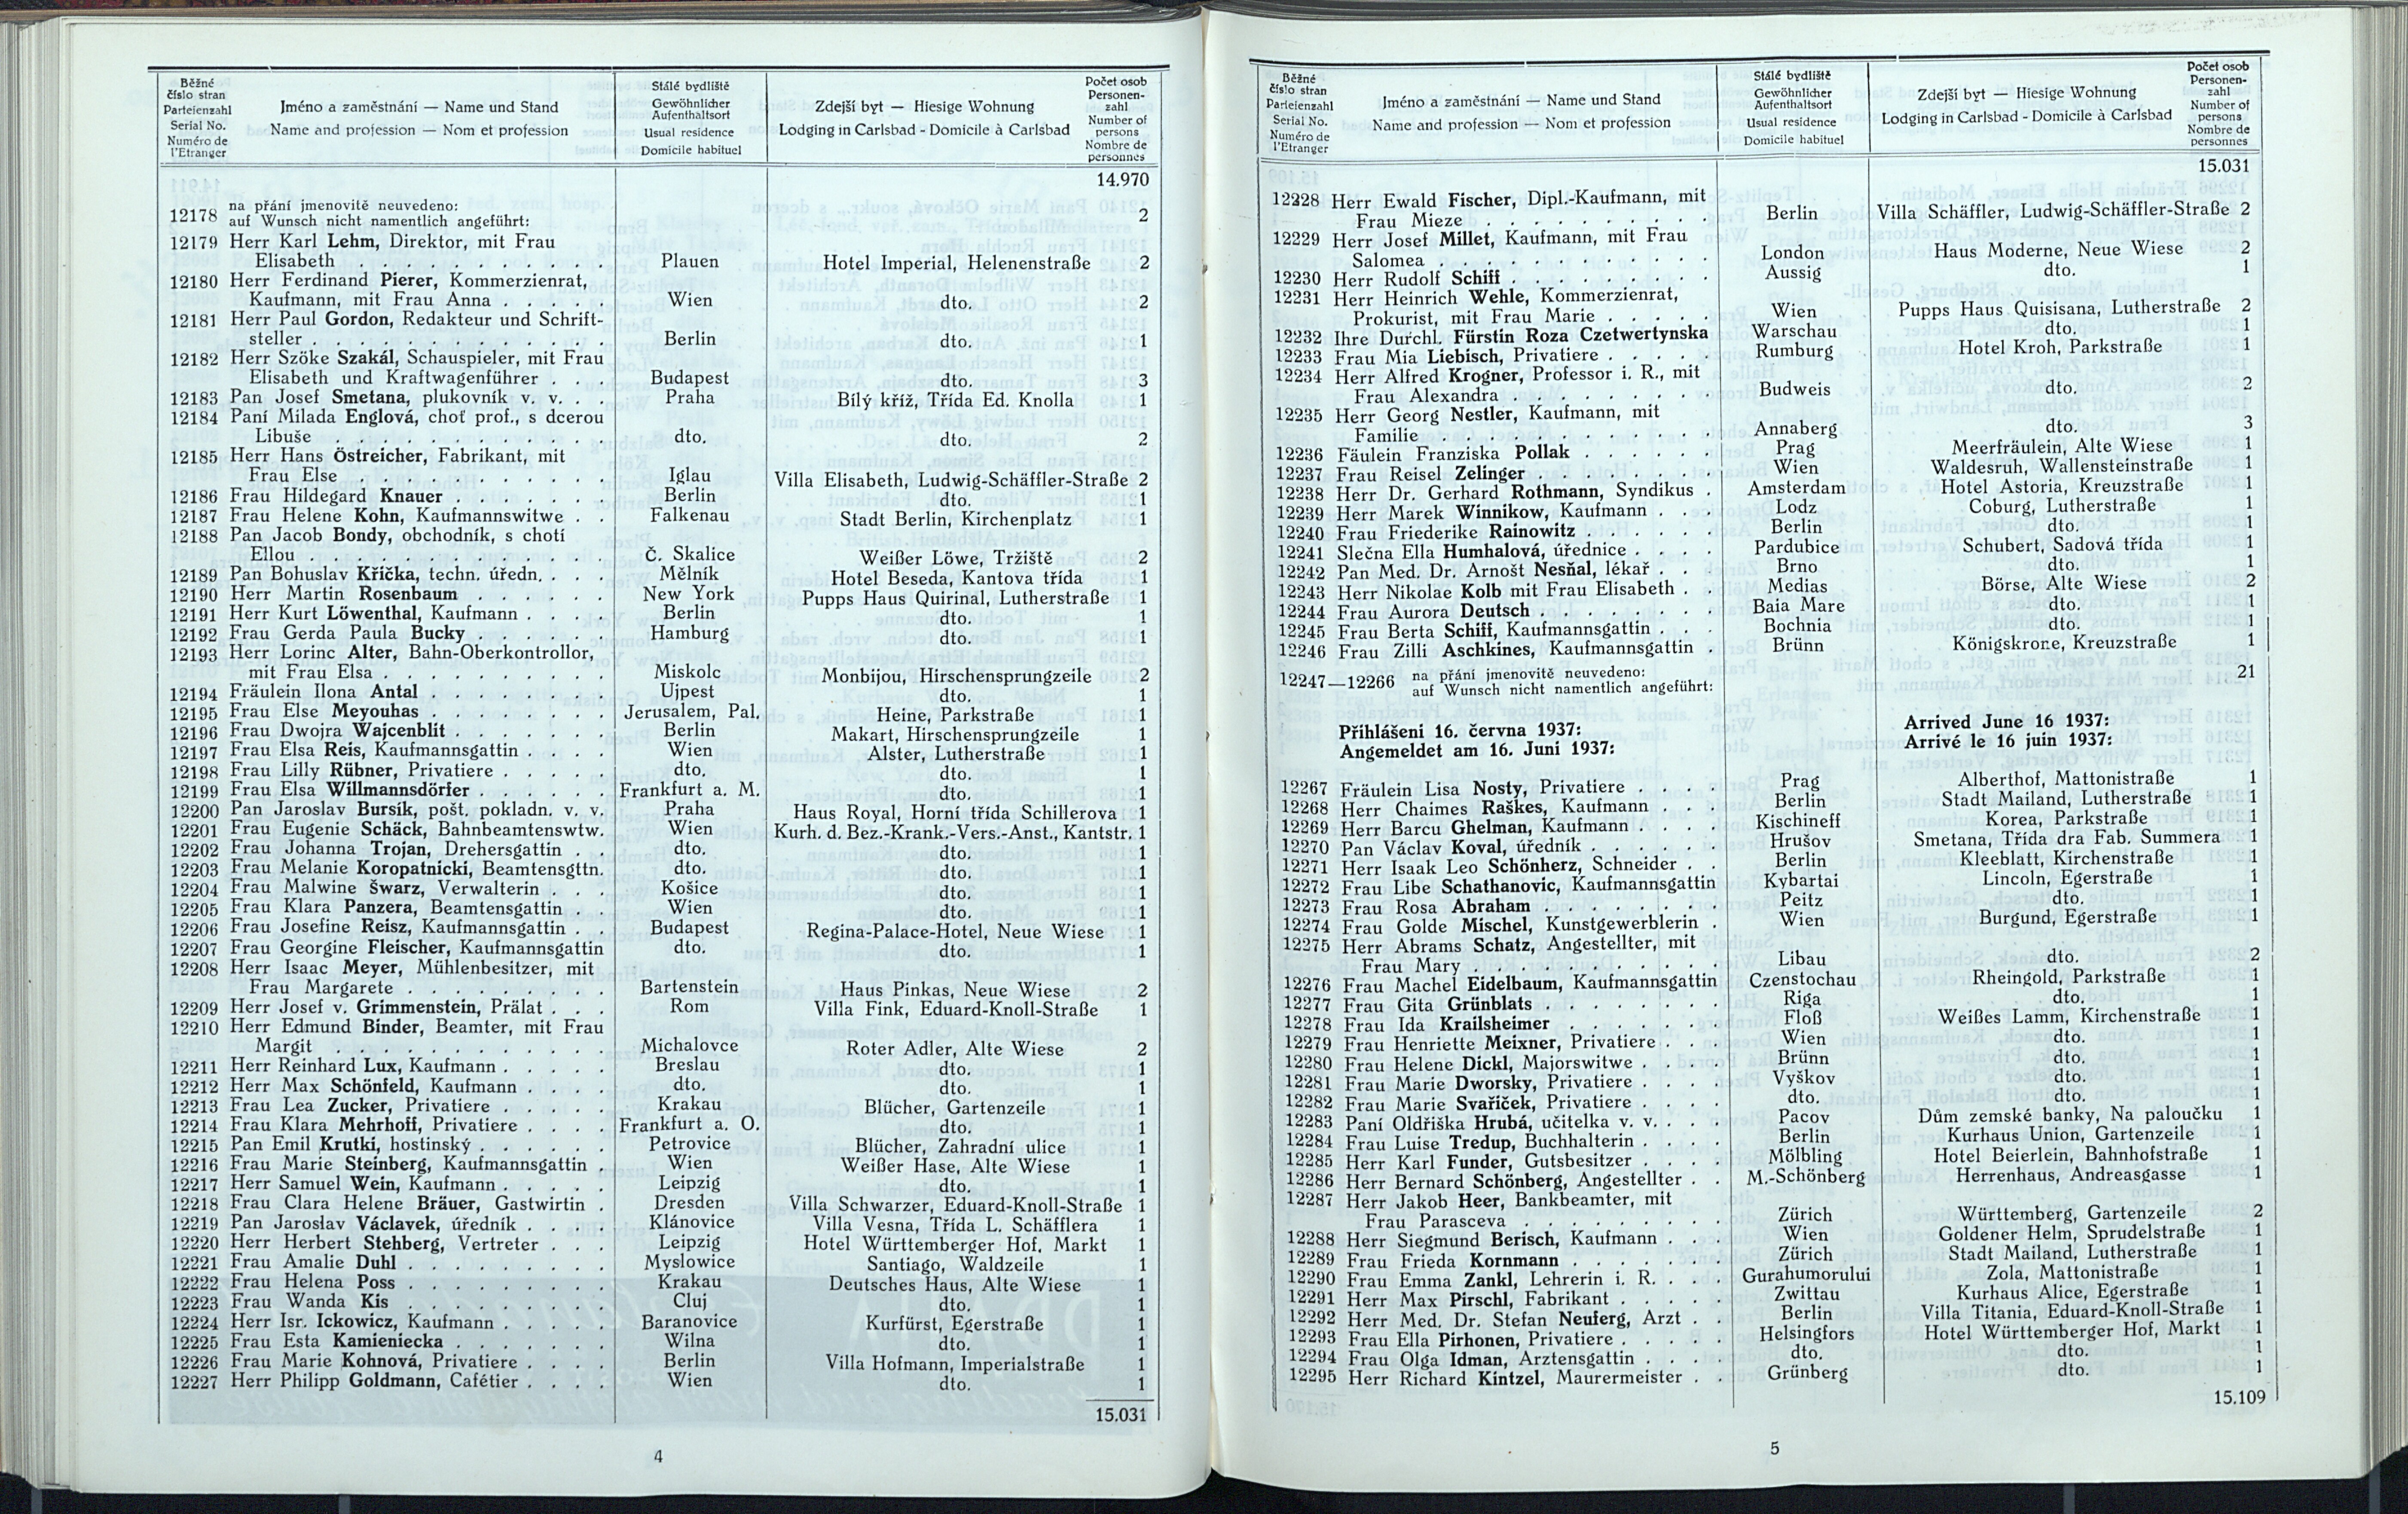 Běžné číslo stran Parteienzahl Serial No. Numéro de l'Etranger
Jméno a zaměstnání — Name und Stand
Name and profession — Nom et profession
Stálé bydliště Gewöhnlicher Aufenthaltsort Usual residence Domicile habituel
Zdejší byt — Hiesige Wohnung
Lodging in Carlsbad - Domicile à Carlsbad
Počet osob Personen-zahl Number of persons Nombre de personnes
14.970
12178 na přání jmenovitě neuvedeno:
auf Wunsch nicht namentlich angeführt: 2
12179 Herr Karl Lehm, Direktor, mit Frau
Elisabeth . . . Plauen Hotel Imperial, Helenenstraße 2
12180 Herr Ferdinand Pierer, Kommerzienrat,
Kaufmann, mit Frau Anna . . . Wien dto. 2
12181 Herr Paul Gordon, Redakteur und Schrift-
steller . . . Berlin dto. 1
12182 Herr Szöke Szakál, Schauspieler, mit Frau
Elisabeth und Kraftwagenführer . . . Budapest dto. 3
12183 Pan Josef Smetana, plukovník v. v. . . Praha Bílý kříž, Třída Ed. Knolla 1
12184 Paní Milada Englová, choť prof., s dcerou
Libuše . . . dto. dto. 2
12185 Herr Hans Östreicher, Fabrikant, mit
Frau Else . . . Iglau Villa Elisabeth, Ludwig-Schäffler-Straße 2
12186 Frau Hildegard Knauer . . . Berlin dto. 1
12187 Frau Helene Kohn, Kaufmannswitwe . . Falkenau Stadt Berlin, Kirchenplatz 1
12188 Pan Jacob Bondy, obchodník, s chotí
Ellou . . . Č. Skalice Weißer Löwe, Tržiště 2
12189 Pan Bohuslav Křička, techn. úředn. . . . Mělník Hotel Beseda, Kantova třída 1
12190 Herr Martin Rosenbaum . . . New York Pupps Haus Quirinal, Lutherstraße 1
12191 Herr Kurt Löwenthal, Kaufmann . . . Berlin dto. 1
12192 Frau Gerda Paula Bucky . . . Hamburg dto. 1
12193 Herr Lorinc Alter, Bahn-Oberkontrollor,
mit Frau Elsa . . . Miskolc Monbijou, Hirschensprungzeile 2
12194 Fräulein Ilona Antal . . . Ujpest dto. 1
12195 Frau Else Meyouhas . . . Jerusalem, Pal. Heine, Parkstraße 1
12196 Frau Dwojra Wajcenblit . . . Berlin Makart, Hirschensprungzeile 1
12197 Frau Elsa Reis, Kaufmannsgattin . . . Wien Alster, Lutherstraße 1
12198 Frau Lilly Rübner, Privatiere . . . dto. dto. 1
12199 Frau Elsa Willmannsdörfer . . . Frankfurt a. M. dto. 1
12200 Pan Jaroslav Bursík, pošt. pokladn. v. v. Praha Haus Royal, Horní třída Schillerova 1
12201 Frau Eugenie Schäck, Bahnbeamtenswtw. Wien Kurh. d. Bez.-Krank.-Vers.-Anst., Kantstr. 1
12202 Frau Johanna Trojan, Drehersgattin . dto. dto. 1
12203 Frau Melanie Koropatnicki, Beamtensgttn. dto. dto. 1
12204 Frau Malwine Šwarz, Verwalterin . . . Košice dto. 1
12205 Frau Klara Panzera, Beamtensgattin . . Wien dto. 1
12206 Frau Josefine Reisz, Kaufmannsgattin . Budapest Regina-Palace-Hotel, Neue Wiese 1
12207 Frau Georgine Fleischer, Kaufmannsgattin dto. dto. 1
12208 Herr Isaac Meyer, Mühlenbesitzer, mit
Frau Margarete . . . Bartenstein Haus Pinkas, Neue Wiese 2
12209 Herr Josef v. Grimmenstein, Prälat . . . Rom Villa Fink, Eduard-Knoll-Straße 1
12210 Herr Edmund Binder, Beamter, mit Frau
Margit . . . Michalovce Roter Adler, Alte Wiese 2
12211 Herr Reinhard Lux, Kaufmann . . . Breslau dto. 1
12212 Herr Max Schönfeld, Kaufmann . . . dto. dto. 1
12213 Frau Lea Zucker, Privatiere . . . Krakau Blücher, Gartenzeile 1
12214 Frau Klara Mehrhoff, Privatiere . . . Frankfurt a. O. dto. 1
12215 Pan Emil Krutki, hostinský . . . Petrovice Blücher, Zahradní ulice 1
12216 Frau Marie Steinberg, Kaufmannsgattin . Wien Weißer Hase, Alte Wiese 1
12217 Herr Samuel Wein, Kaufmann . . . Leipzig dto. 1
12218 Frau Clara Helene Bräuer, Gastwirtin . Dresden Villa Schwarzer, Eduard-Knoll-Straße 1
12219 Pan Jaroslav Václavek, úředník . . . Klánovice Villa Vesna, Třída L. Schäfflera 1
12220 Herr Herbert Stehberg, Vertreter . . . Leipzig Hotel Württemberger Hof, Markt 1
12221 Frau Amalie Duhl . . . Myslowice Santiago, Waldzeile 1
12222 Frau Helena Poss . . . Krakau Deutsches Haus, Alte Wiese 1
12223 Frau Wanda Kis . . . Cluj dto. 1
12224 Herr Isr. Ickowicz, Kaufmann . . . Baranovice Kurfürst, Egerstraße 1
12225 Frau Esta Kamieniecka . . . Wilna dto. 1
12226 Frau Marie Kohnová, Privatiere . . . Berlin Villa Hofmann, Imperialstraße 1
12227 Herr Philipp Goldmann, Cafétier . . . Wien dto. 1
15.031
4
Běžné číslo stran Parteienzahl Serial No. Numéro de l'Etranger
Jméno a zaměstnání — Name und Stand
Name and profession — Nom et profession
Stálé bydliště Gewöhnlicher Aufenthaltsort Usual residence Domicile habituel
Zdejší byt — Hiesige Wohnung
Lodging in Carlsbad - Domicile à Carlsbad
Počet osob Personen-zahl Number of persons Nombre de personnes
15.031
12228 Herr Ewald Fischer, Dipl.-Kaufmann, mit
Frau Mieze . . . Berlin Villa Schäffler, Ludwig-Schäffler-Straße 2
12229 Herr Josef Millet, Kaufmann, mit Frau
Salomea . . . London Haus Moderne, Neue Wiese 2
12230 Herr Rudolf Schiff . . . Aussig dto. 1
12231 Herr Heinrich Wehle, Kommerzienrat,
Prokurist, mit Frau Marie . . . Wien Pupps Haus Quisisana, Lutherstraße 2
12232 Ihre Durchl. Fürstin Roza Czetwertynska Warschau dto. 1
12233 Frau Mia Liebisch, Privatiere . . . Rumburg Hotel Kroh, Parkstraße 1
12234 Herr Alfred Krogner, Professor i. R., mit
Frau Alexandra . . . Budweis dto. 2
12235 Herr Georg Nestler, Kaufmann, mit
Familie . . . Annaberg dto. 3
12236 Fäulein Franziska Pollak . . . Prag Meerfräulein, Alte Wiese 1
12237 Frau Reisel Zelinger . . . Wien Waldesruh, Wallensteinstraße 1
12238 Herr Dr. Gerhard Rothmann, Syndikus . Amsterdam Hotel Astoria, Kreuzstraße 1
12239 Herr Marek Winnikow, Kaufmann . . Lodz Coburg, Lutherstraße 1
12240 Frau Friederike Rainowitz . . . Berlin dto. 1
12241 Slečna Ella Humhalová, úřednice . . . Pardubice Schubert, Sadová třída 1
12242 Pan Med. Dr. Arnošt Nesňal, lékař . . Brno dto. 1
12243 Herr Nikolae Kolb mit Frau Elisabeth . Medias Börse, Alte Wiese 2
12244 Frau Aurora Deutsch . . . Baia Mare dto. 1
12245 Frau Berta Schiff, Kaufmannsgattin . . . Bochnia dto. 1
12246 Frau Zilli Aschkines, Kaufmannsgattin . Brünn Königskrone, Kreuzstraße 1
12247—12266 na přání jmenovitě neuvedeno:
auf Wunsch nicht namentlich angeführt: 21
Přihlášeni 16. června 1937: Arrived June 16 1937:
Angemeldet am 16. Juni 1937: Arrivé le 16 juin 1937:
12267 Fräulein Lisa Nosty, Privatiere . . . Prag Alberthof, Mattonistraße 1
12268 Herr Chaimes Raškes, Kaufmann . . . Berlin Stadt Mailand, Lutherstraße 1
12269 Herr Barcu Ghelman, Kaufmann . . . Kischineff Korea, Parkstraße 1
12270 Pan Václav Koval, úředník . . . Hrušov Smetana, Třída dra Fab. Summera 1
12271 Herr Isaak Leo Schönherz, Schneider . . Berlin Kleeblatt, Kirchenstraße 1
12272 Frau Libe Schathanovic, Kaufmannsgattin Kybartai Lincoln, Egerstraße 1
12273 Frau Rosa Abraham . . . Peitz dto. 1
12274 Frau Golde Mischel, Kunstgewerblerin . Wien Burgund, Egerstraße 1
12275 Herr Abrams Schatz, Angestellter, mit
Frau Mary . . . Libau dto. 2
12276 Frau Machel Eidelbaum, Kaufmannsgattin Czenstochau Rheingold, Parkstraße 1
12277 Frau Gita Grünblats . . . Riga dto. 1
12278 Frau Ida Krailsheimer . . . Floß Weißes Lamm, Kirchenstraße 1
12279 Frau Henriette Meixner, Privatiere . . . Wien dto. 1
12280 Frau Helene Dickl, Majorswitwe . . . Brünn dto. 1
12281 Frau Marie Dworsky, Privatiere . . . Vyškov dto. 1
12282 Frau Marie Svaříček, Privatiere . . . dto. dto. 1
12283 Paní Oldřiška Hrubá, učitelka v. v. . . Pacov Dům zemské banky, Na paloučku 1
12284 Frau Luise Tredup, Buchhalterin . . . Berlin Kurhaus Union, Gartenzeile 1
12285 Herr Karl Funder, Gutsbesitzer . . . Mölbling Hotel Beierlein, Bahnhofstraße 1
12286 Herr Bernard Schönberg, Angestellter . . M.-Schönberg Herrenhaus, Andreasgasse 1
12287 Herr Jakob Heer, Bankbeamter, mit
Frau Parasceva . . . Zürich Württemberg, Gartenzeile 2
12288 Herr Siegmund Berisch, Kaufmann . . . Wien Goldener Helm, Sprudelstraße 1
12289 Frau Frieda Kornmann . . . Zürich Stadt Mailand, Lutherstraße 1
12290 Frau Emma Zankl, Lehrerin i. R. . . . Gurahumorului Zola, Mattonistraße 1
12291 Herr Max Pirschl, Fabrikant . . . Zwittau Kurhaus Alice, Egerstraße 1
12292 Herr Med. Dr. Stefan Neuferg, Arzt . . Berlin Villa Titania, Eduard-Knoll-Straße 1
12293 Frau Ella Pirhonen, Privatiere . . . Helsingfors Hotel Württemberger Hof, Markt 1
12294 Frau Olga Idman, Arztensgattin . . . dto. dto. 1
12295 Herr Richard Kintzel, Maurermeister . . Grünberg dto. 1
15.109
5